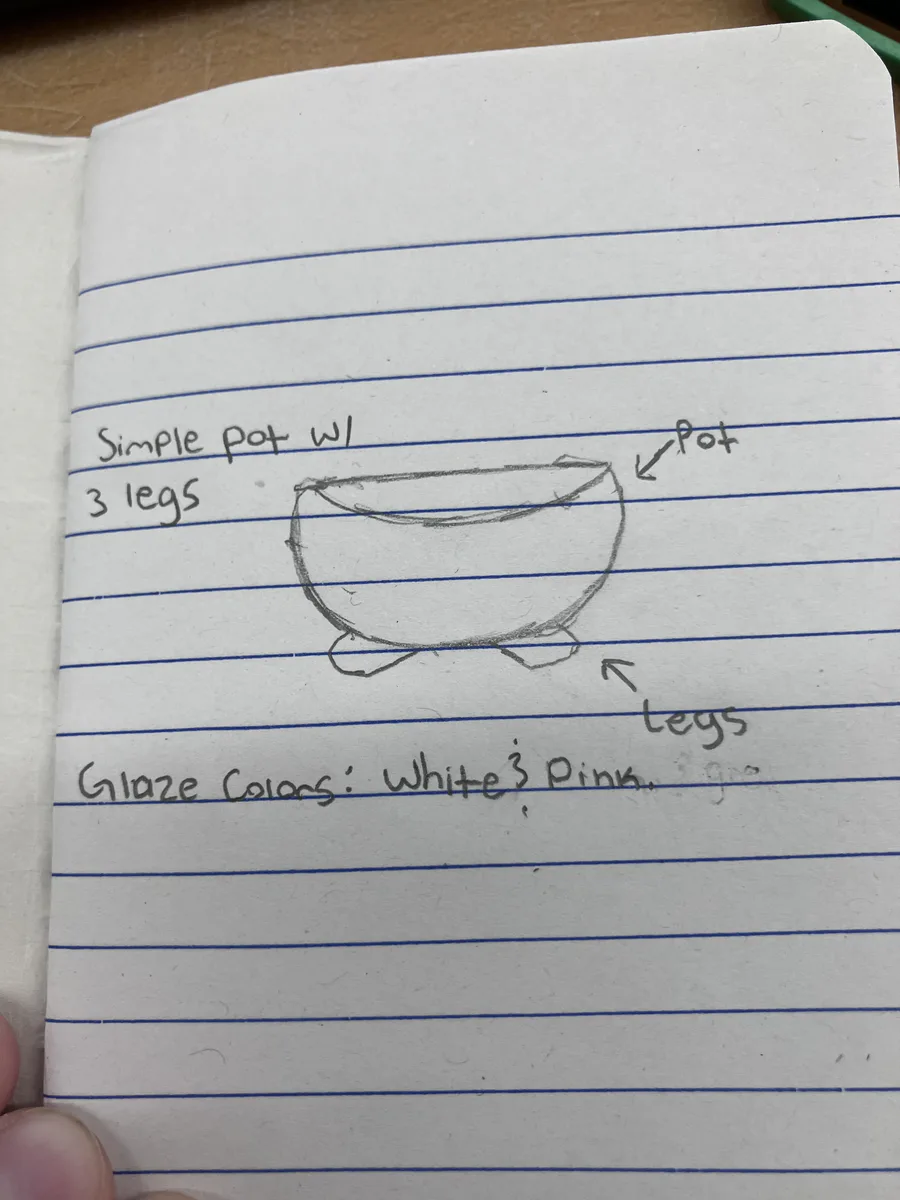 Simple pot w/
3 legs
Pot
Legs
Glaze Colors: White & Pink.